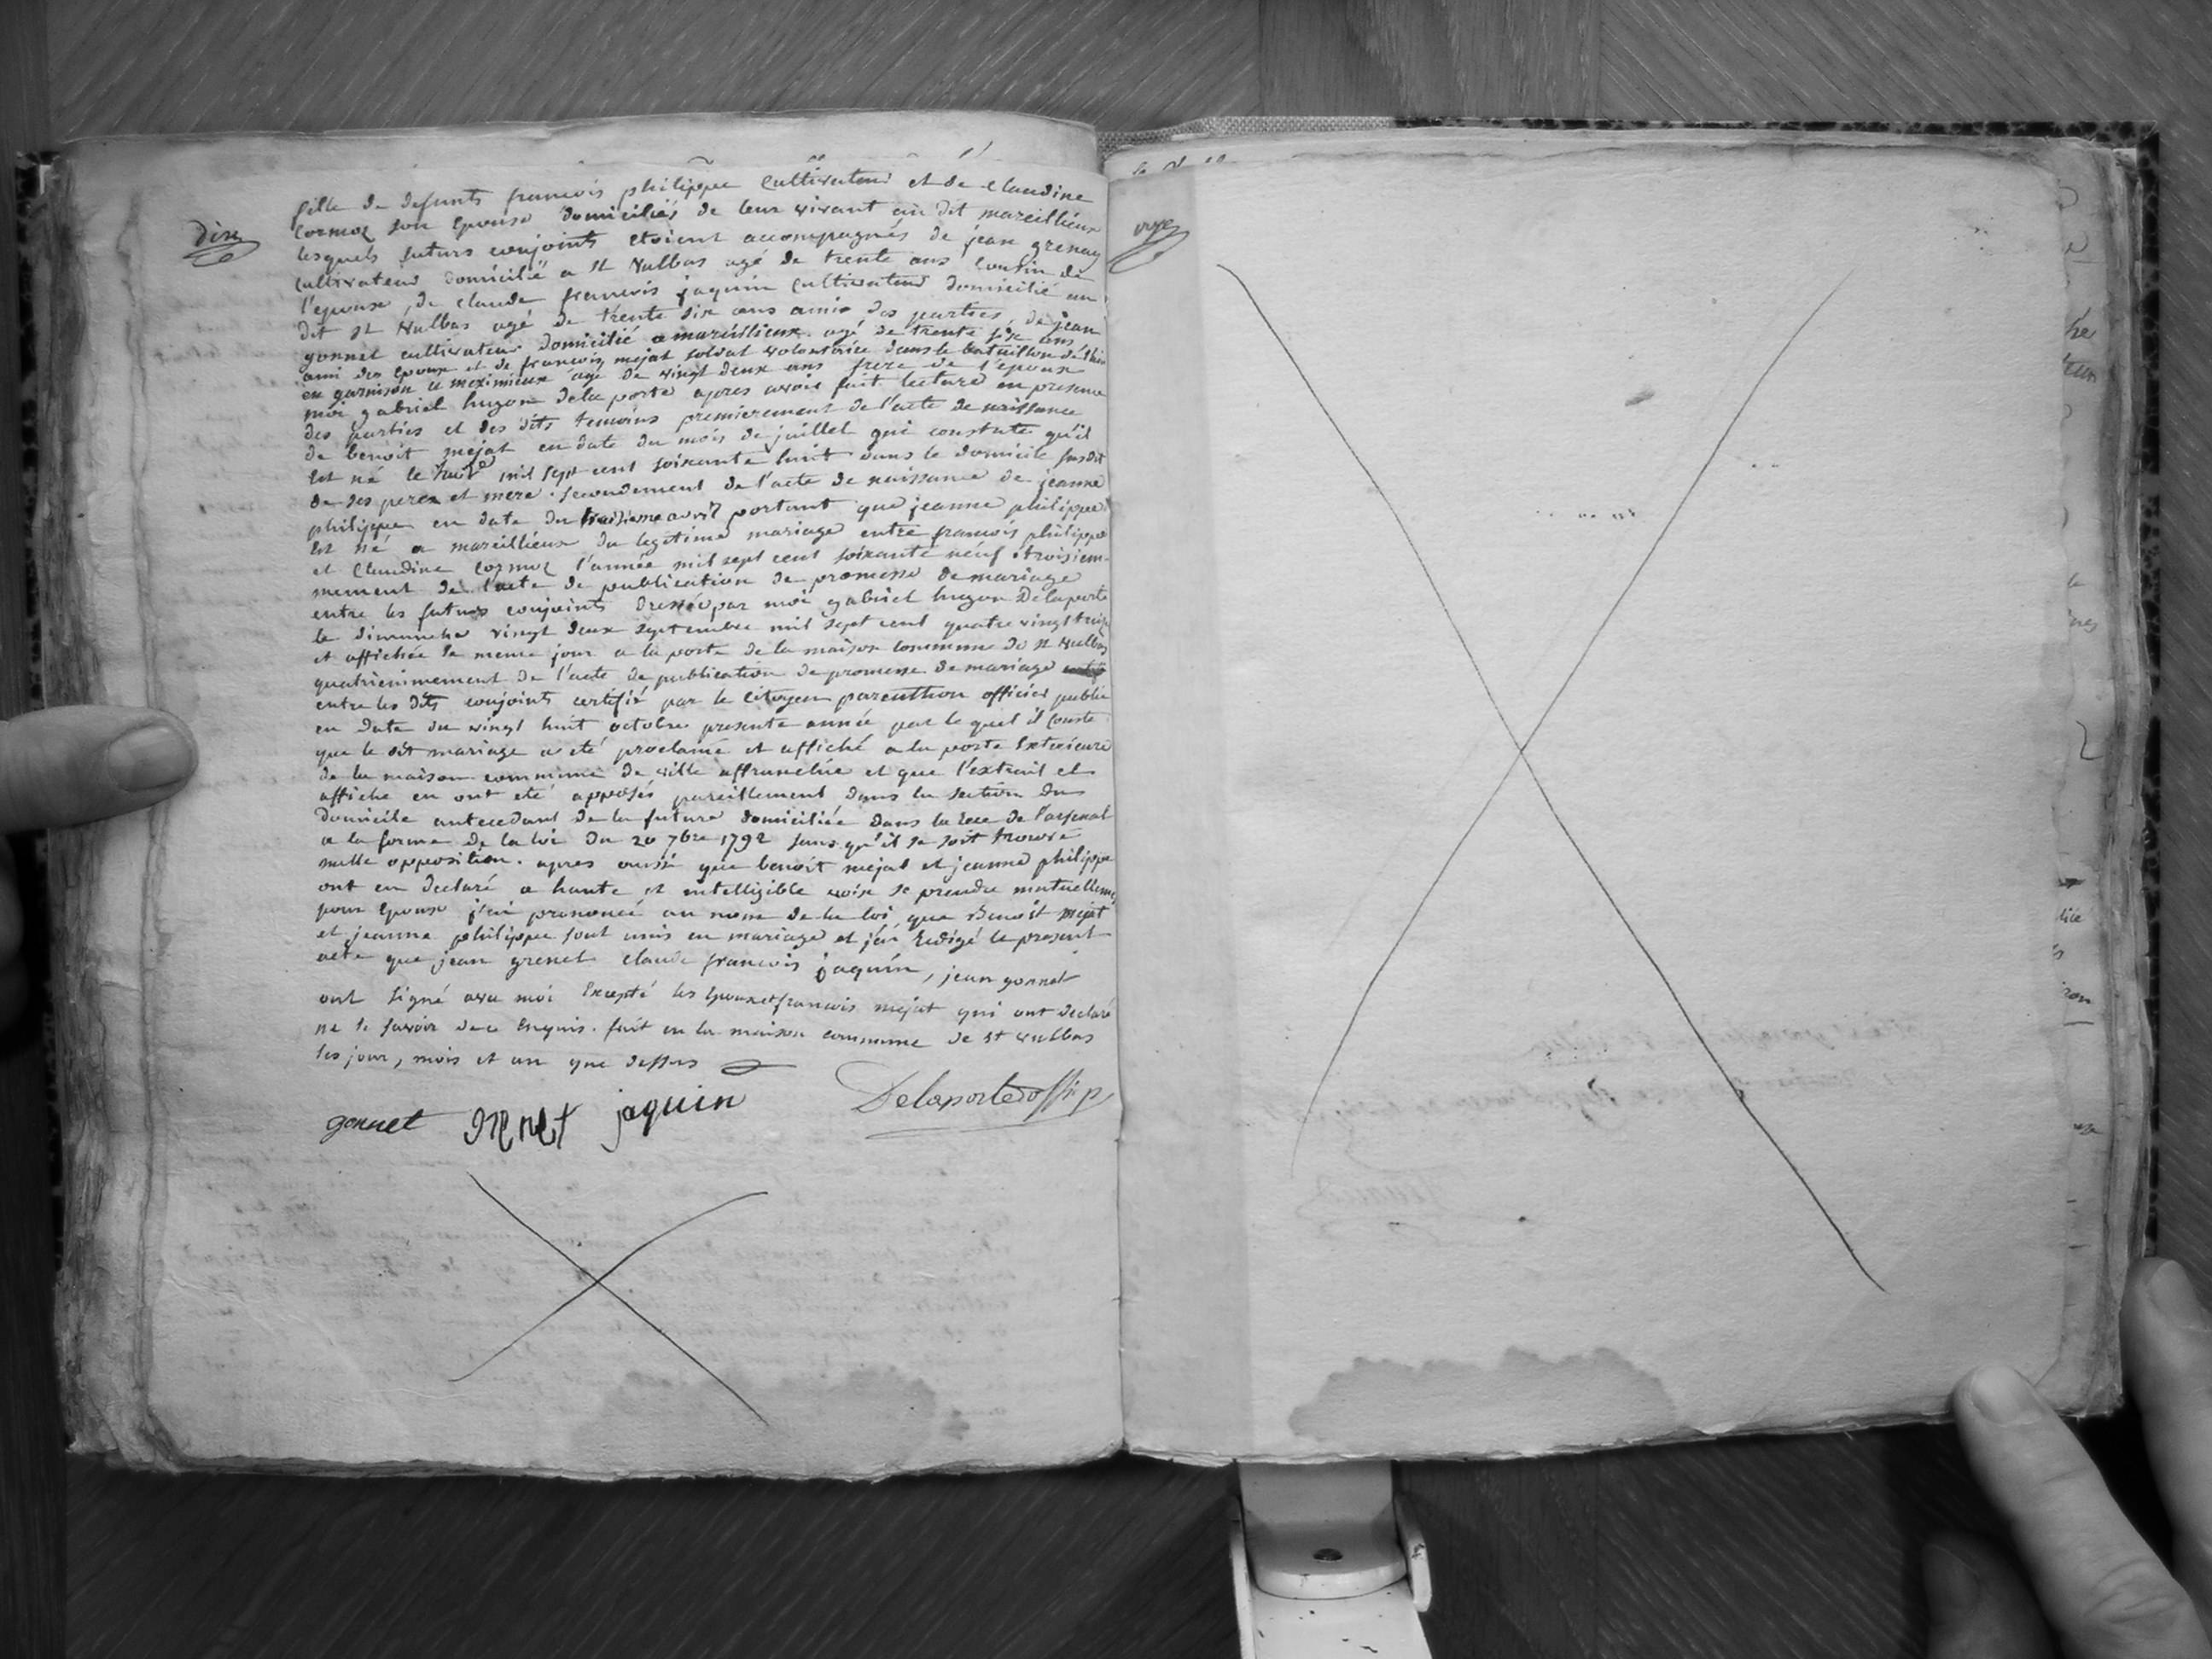 dix
fille de defunts francois philippe Cultivateur et de Claudine
Cormoz son Epouse domiciliés de leur vivant au dit mareillieux
lesquels futurs conjoints etoient accompagnés de jean grenay
Cultivateur domicilié a St Vulbas agé de trente ans Cousin de
l'epouse, de Claude francois jaquin Cultivateur domicilié au
dit St Vulbas agé de trente six ans amis des parties, de jean
gonnet cultivateur domicilié a mareillieux agé de trente six ans
ami des epoux et de francois mejat soldat volontaire dans le bataillon de
en garnison a meximieux agé de vingt deux ans frere de l'epoux
moi gabriel hugon delaporte apres avoir fait lecture en presence
des parties et des dits temoins premierement de l'acte de naissance
de benoit mejat en date du mois de juillet qui constate qu'il
Est né le mil sept cent soixante huit dans le domicile susdit
de ses peres et mere. secondement de l'acte de naissance de jeanne
philippe en date du avril portant que jeanne philippe
Est né a mareillieux du legitime mariage entre francois philippe
et Claudine Cormoz l'année mil sept cent soixante neuf troisiem-
mement de l'acte de publication de promesse de mariage
entre les futurs conjoints dressé par moi gabriel hugon Delaporte
le dimanche vingt deux septembre mil sept cent quatre vingt treize
et affichée le meme jour a la porte de la maison commune de St Vulbas
quatriemmement de l'acte de publication de promesse de mariage
entre les dits conjoints certifié par le Citoyen parenthon officier public
en date du vingt huit octobre presente année par le quel il Conste
que le dit mariage a eté proclamé et affiché a la porte Exterieure
de la maison commune de ville affranchie et que l'extrait et
affiche en ont eté apposés pareillement dans la section du
Domicile antecedant de la future domiciliée dans la rue de l'arsenal
a la forme de la loi du 20 7bre 1792 sans qu'il se soit trouvé
nulle opposition. apres aussi que benoit mejat et jeanne philippe
ont eu declaré a haute et intelligible voix se prendre mutuellement
pour Epoux j'ai prononcé au nom de la loi que Benoit mejat
et jeanne philippe sont unis en mariage et j'ai Redigé le present
acte que jean grenet claude francois jaquin, jean gonnet
ont signé avec moi Excepté les Epoux et francois mejat qui ont declaré
ne le savoir de ce Enquis. fait en la maison commune de St Vulbas
les jour, mois et an que dessus
gonnet grenet jaquin Delaporte off. p.
onze